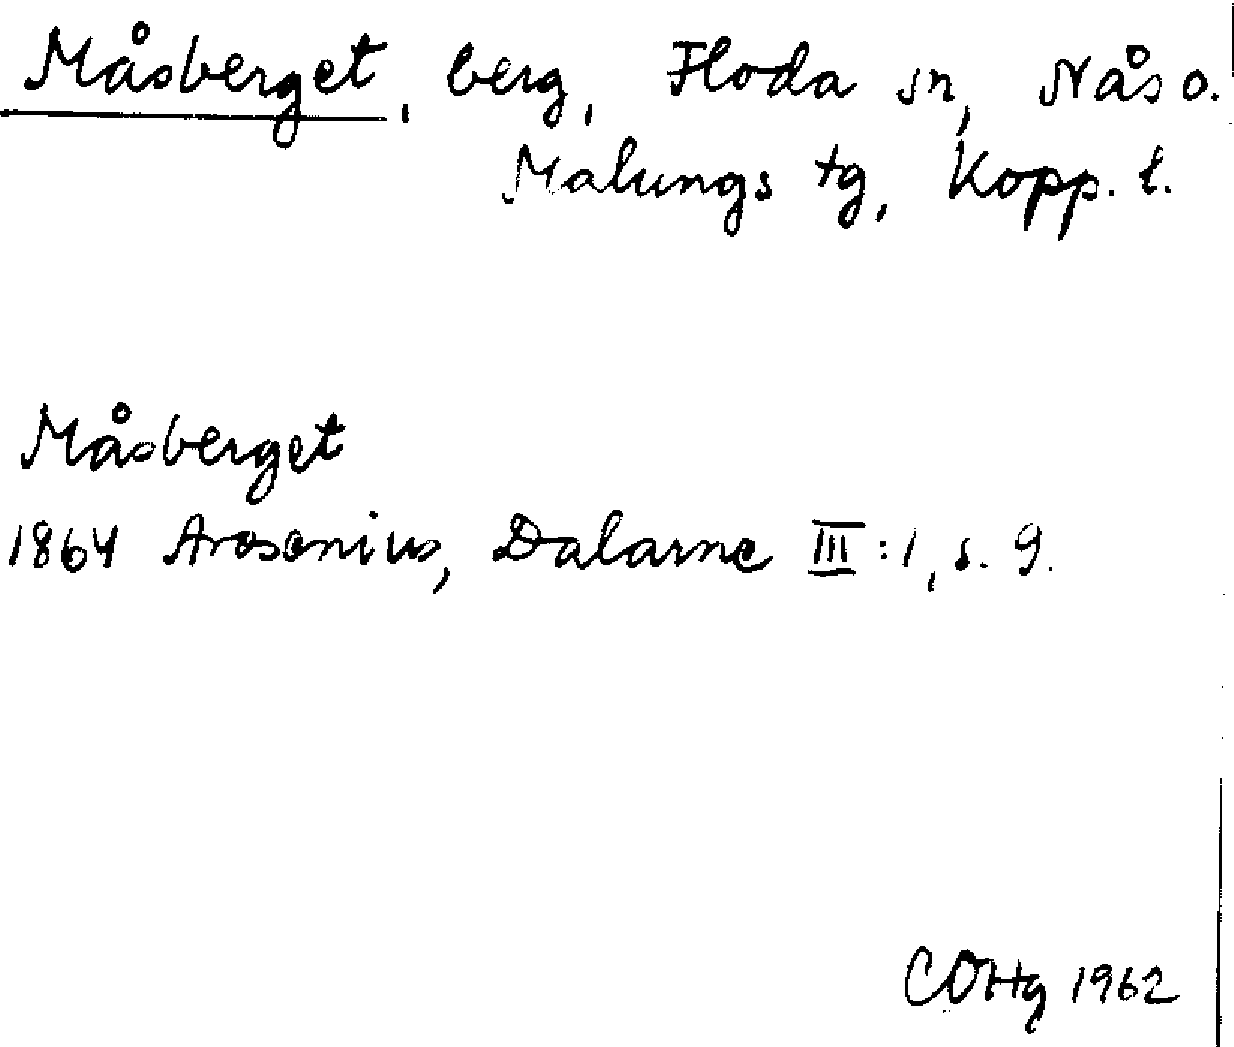 Måsberget, berg, Floda sn, Nås o.
Malungs tg, Kopp. l.
Måsberget
1864 Arosenius, Dalarne III:1, s. 9.
COHg 1962